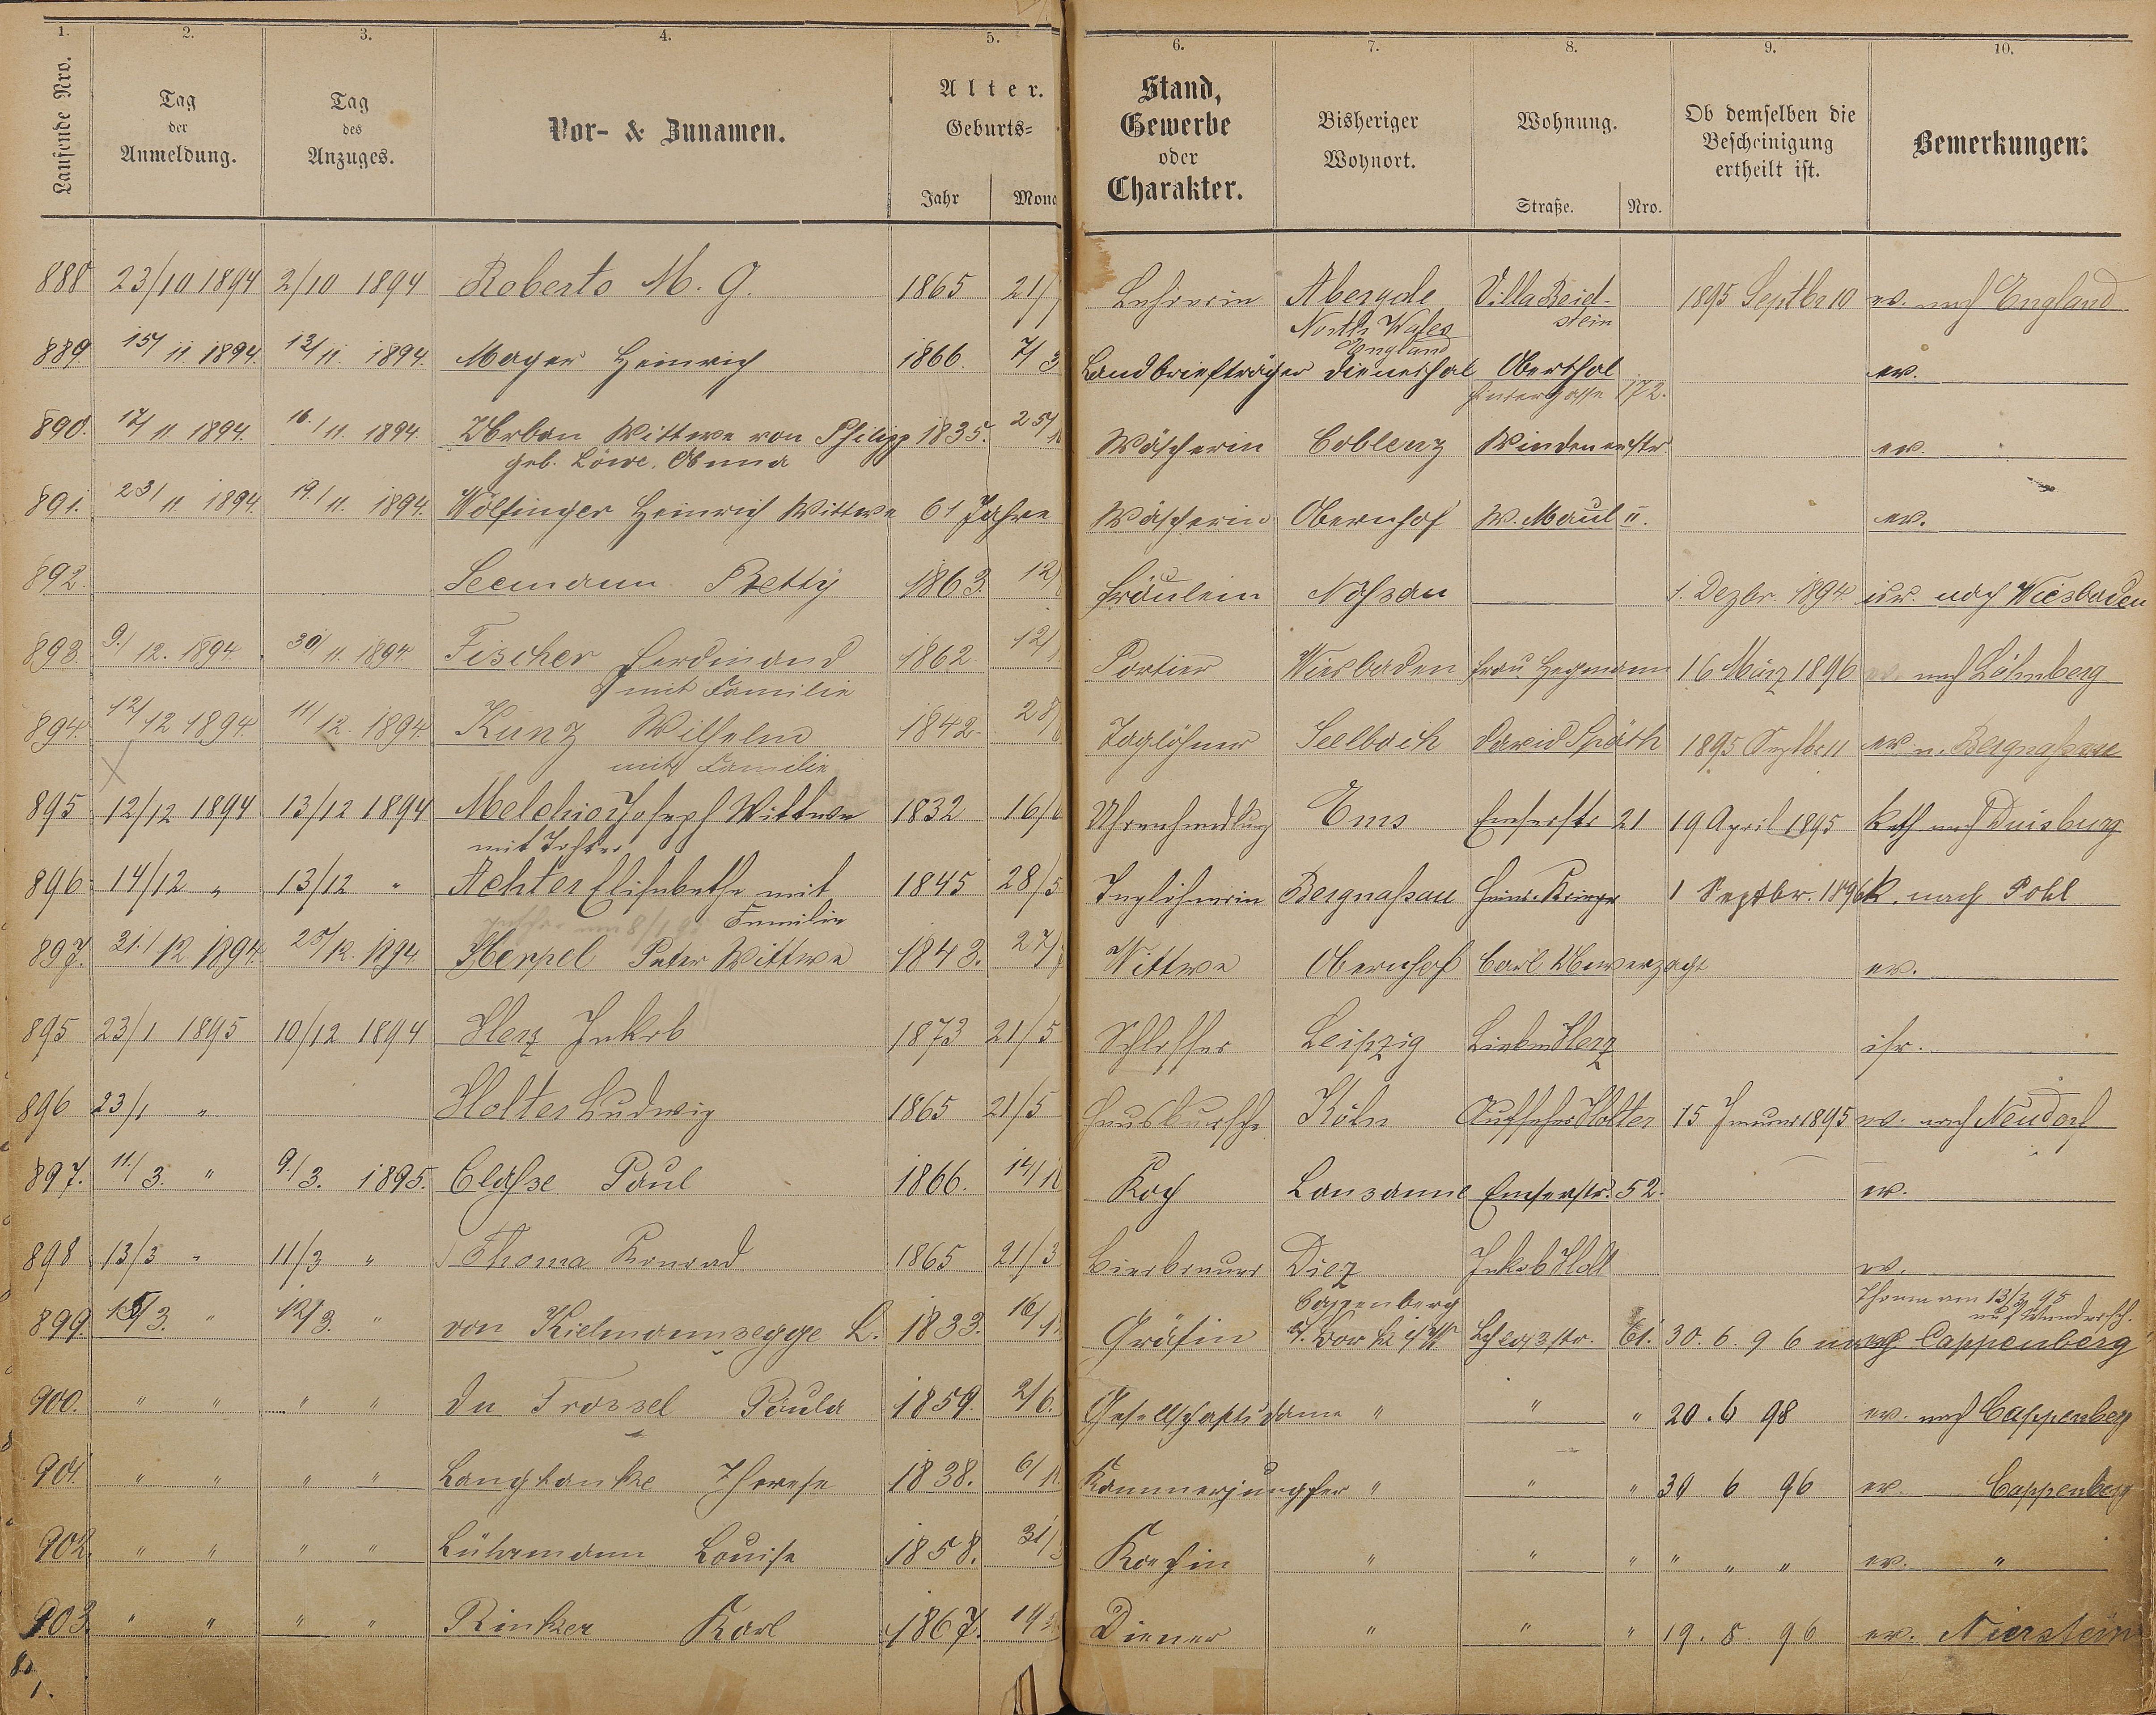 1. 2. 3. 4. 5. 6. 7. 8. 9. 10.
Laufende Nro.
Tag der Anmeldung.
Tag des Anzuges.
Vor- & Zunamen.
Alter.
Geburts-
Jahr Mona
Stand, Gewerbe oder Charakter.
Bisheriger Wohnort.
Wohnung.
Straße. Nro.
Ob demselben die Bescheinigung ertheilt ist.
Bemerkungen.
888 23/10 1894 2/10 1894 Roberts M. G. 1865 21/ Lehrerin Abergele Villa Beiel- 1895 Septbr 10 ev. nach England
North Wales stein
England
889. 15/11. 1894. 12/11. 1894. Mayer Heinrich 1866. 7/3 Landbriefträger Dienethal Oberthal ev.
172.
890. 17/11 1894. 16./11. 1894. Urban Wittwe von Philipp 1835. 25/ Wäscherin Coblenz Windenerstr. ev.
geb. Löwe. Anna
891. 23/11 1894. 19./11. 1894. Wölfinger Heinrich Wittwe 61 Jahre Wäscherin Obernhof W. Maul II. ev.
892. Seemann Betty 1863. 12/ Fräulein Nassau 1. Dezbr. 1894 isr. nach Wiesbaden
893. 9./12. 1894. 30/11. 1894. Fischer Ferdinand 1862. 12/ Portier Wiesbaden Frau Hegmann 16 März 1896 ev. nach Löhnberg
mit Familie
894. 12/12 1894. 11/12. 1894. Kunz Wilhelm 1842. 28/ Taglöhner Seelbach David Späth 1895 Septbr 11 ev. n. Bergnassau
mit Familie
895 12/12 1894 13/12 1894 Melchior Joseph Wittwe 1832 16/6 Uhrenhandlung Ems Emserstr. 21 19 April 1895 kath nach Duisburg
mit Tochter
896 14/12 " 13/12 " Achter Elisabetha mit 1845 28/5 Taglöhnerin Bergnassau Heinr. Krieger 1 Septbr. 1896 k. nach Pohl
Familie
897. 21./12. 1894. 25/12. 1894. Heppel Peter Wittwe 1843. 27/ Wittwe Obernhof Carl Unverzagt ev.
895 23/1 1895 10/12 1894 Herz Jakob 1873 21/5 Schlosser Leipzig Liebm. Herz isr.
896 23/1 " Holter Ludwig 1865 21/5 Hausbursche Köln Aufseher Holter 15 Januar 1895 ev. nach Neudorf
897. 11./3. " 9./3. 1895. Classe Paul 1866. 14/1 Koch Lausanne Emserstr. 52. ev.
898 13/3 " 11/3 " Thoma Konrad 1865 21/3 Bierbrauer Diez Jakob Holl ev.
Thoma am 13/3 95
899. 15/3. " 12/3. " von Kielmannsegge L. 1833. 16/1 Gräfin Cappenberg Schloßstr. 61. 30. 6. 96 nach Cappenberg
900. " " " " Du Trossel Paula 1859. 2/6. Gesellschaftsdame " " " 20. 6 98 ev. nach Cappenberg
901. " " " " Langhanke Therese 1838. 6/1 Kammerjungfer " " " 30 6 96 ev. Cappenberg
902. " " " " Lührmann Louise 1858. 31/ Köchin " " " " " " ev. "
903. " " " " Rinker Karl 1867. 14 Diener " " " 19. 8. 96 ev. Nierstein